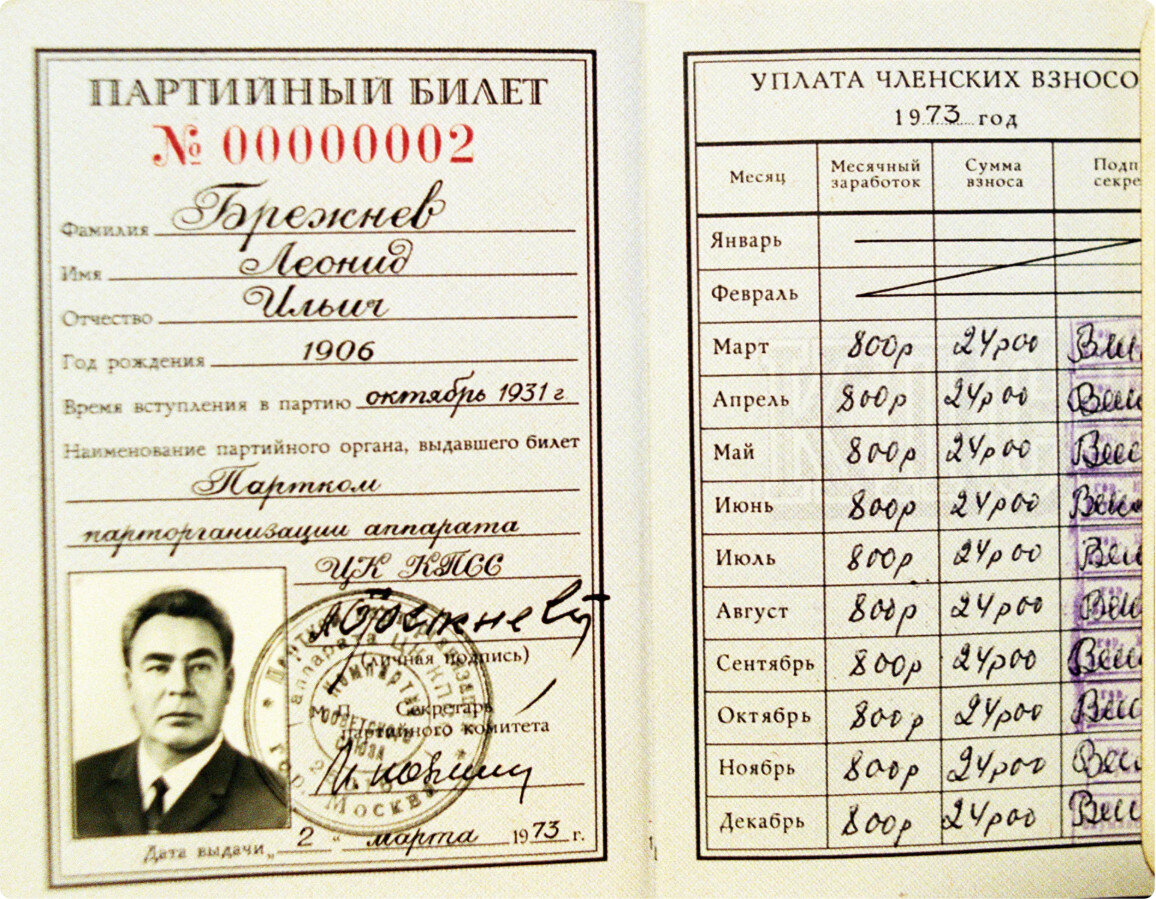 ПАРТИЙНЫЙ БИЛЕТ
№ 00000002
Фамилия Брежнев
Имя Леонид
Отчество Ильич
Год рождения 1906
Время вступления в партию октябрь 1931 г
Наименование партийного органа, выдавшего билет
Партком
парторганизации аппарата
ЦК КПСС
(личная подпись)
М.П. Секретарь
партийного комитета
гор. Москва
Дата выдачи „ 2 “ марта 1973 г.
УПЛАТА ЧЛЕНСКИХ ВЗНОСО
1973 год
Месяц Месячный заработок Сумма взноса Подп секре
Январь
Февраль
Март 800р 24р00
Апрель 800р 24р00
Май 800р 24р00
Июнь 800р 24р00
Июль 800р 24р00
Август 800р 24р00
Сентябрь 800р 24р00
Октябрь 800р 24р00
Ноябрь 800р 24р00
Декабрь 800р 24р00